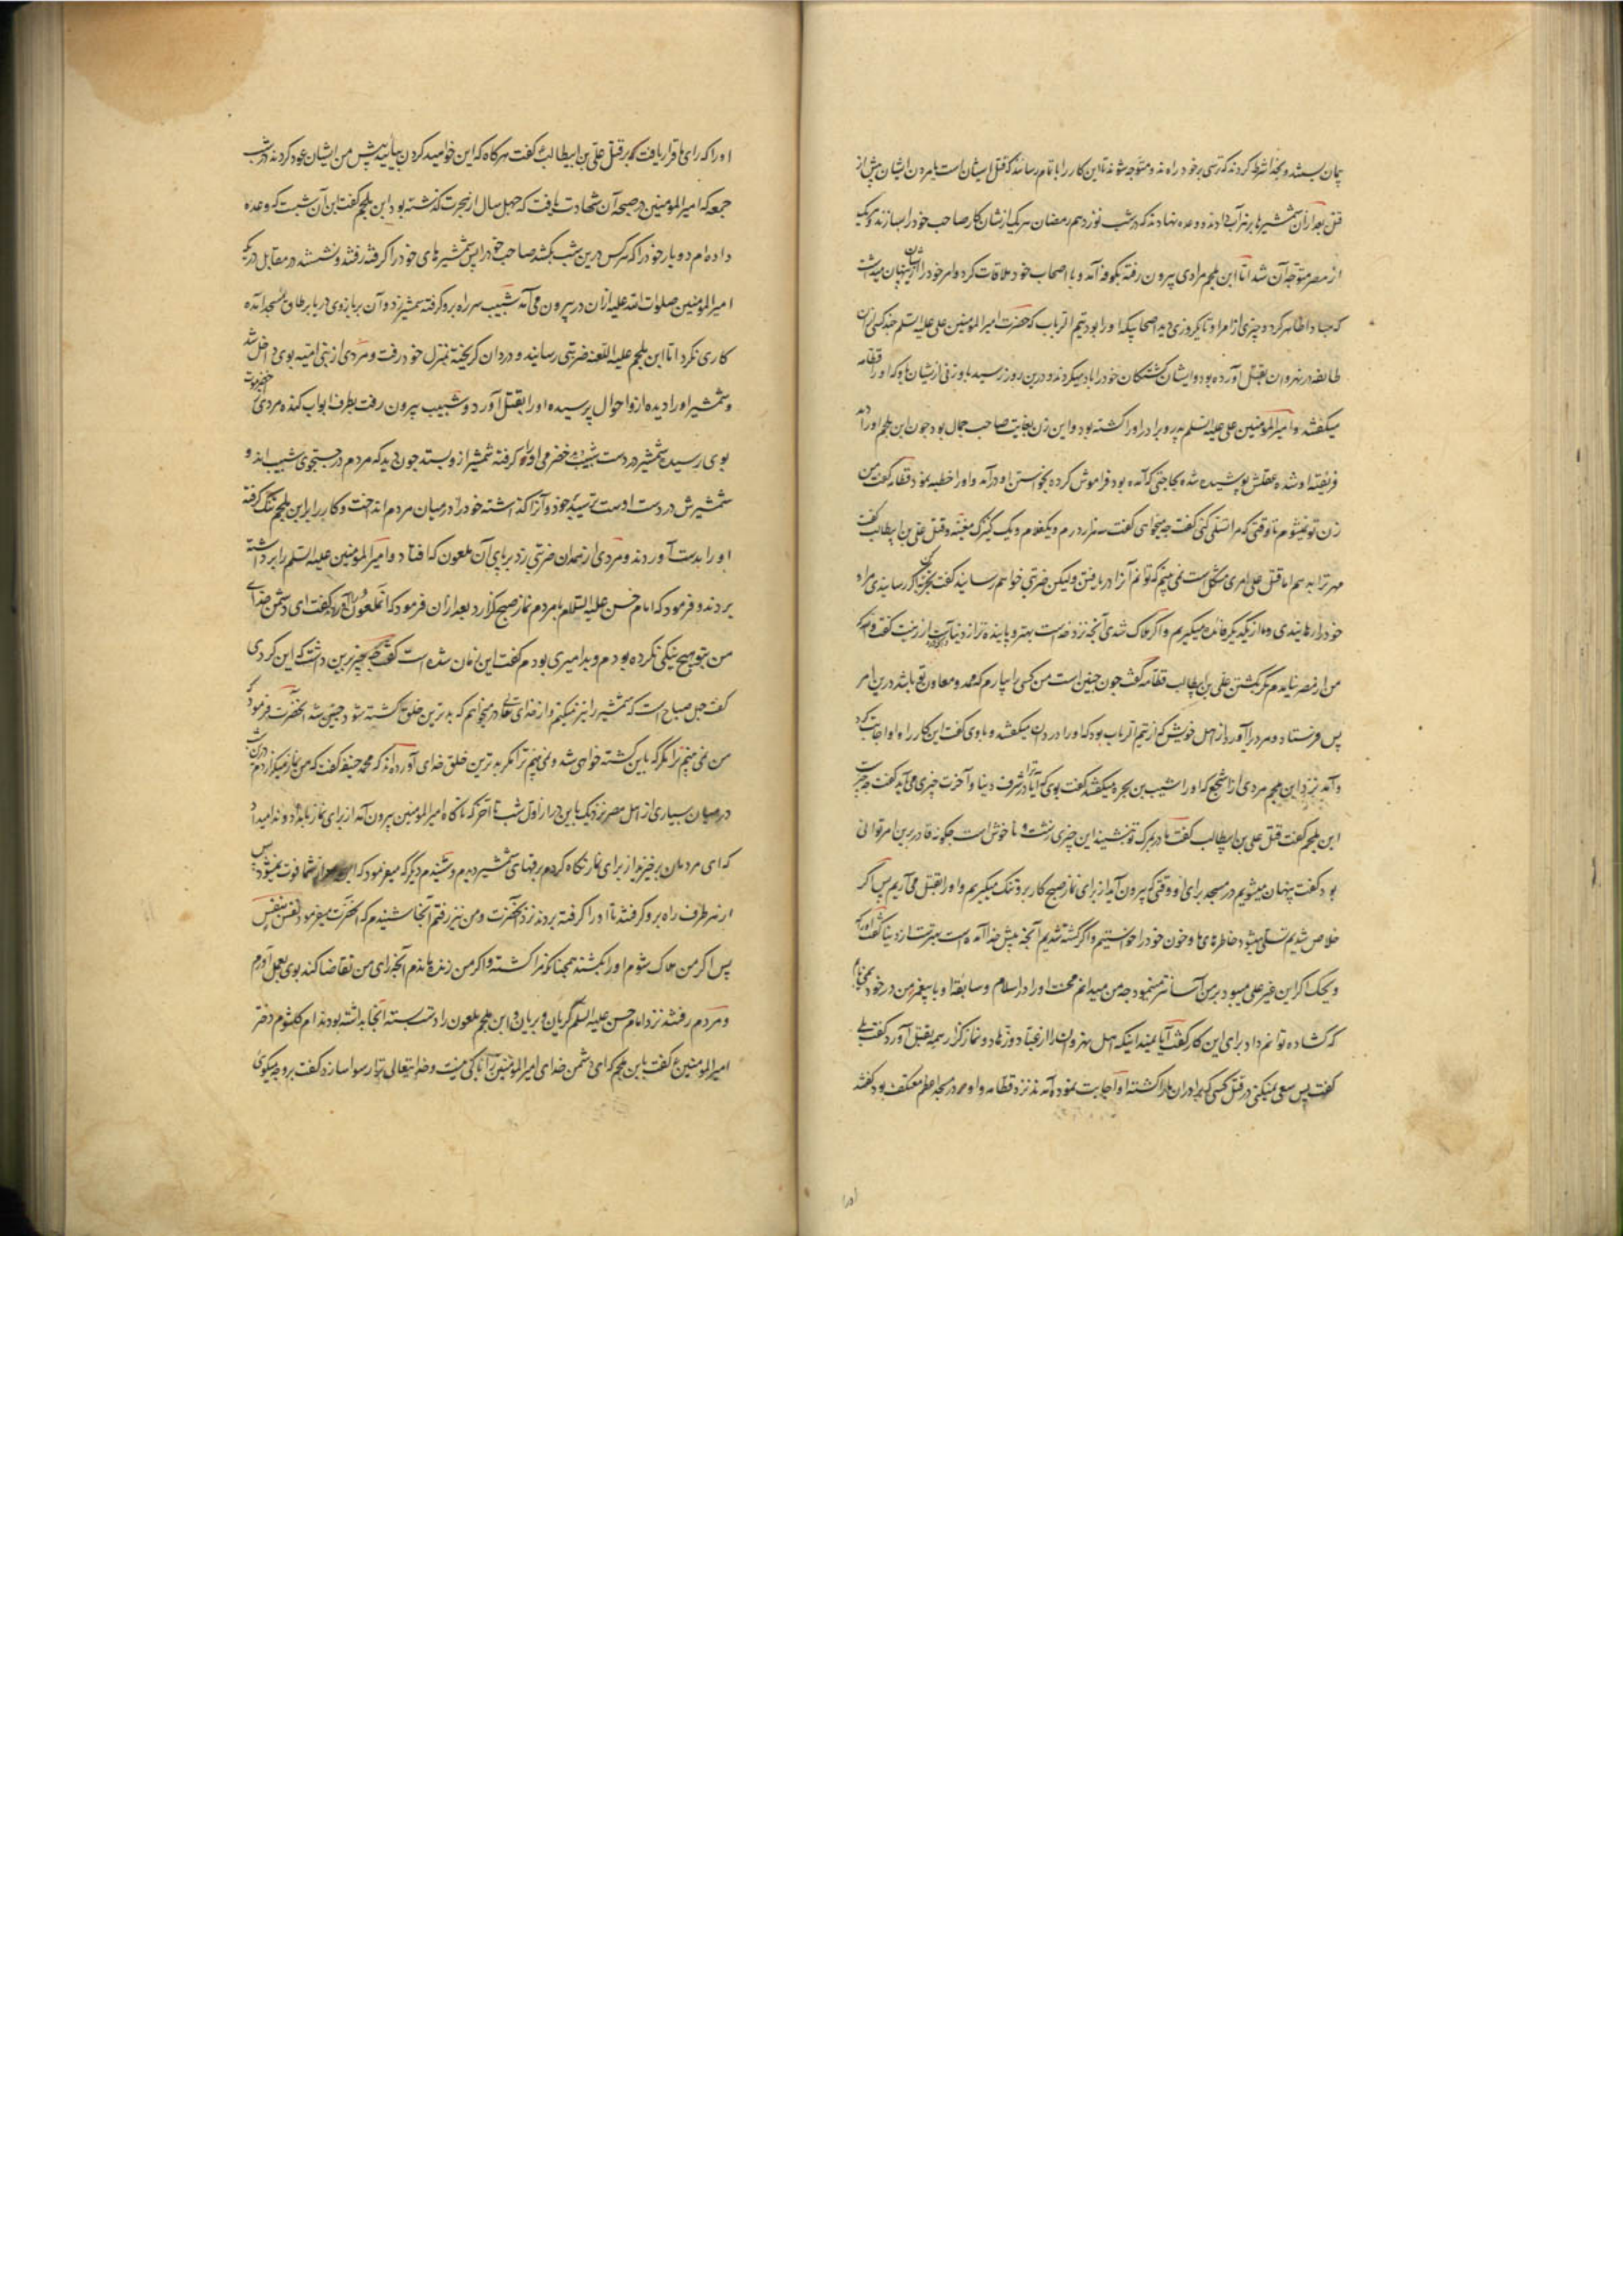 پمان بستند و بخدا شرط کردند که ترسی بر خود راه ندهند و متوجه شوند تا این کار را باتمام رسانند که قتل ایشان است یا مردن ایشان پیش از
قتل بعد از آن شمشیرها بزهر آب دادند و وعده نهادند که در شب نوزدهم رمضان هر یک از یشان کار صاحب خود را بسازند و هر یک
از مصر متوجه آن شد اما ابن ملجم مرادی بیرون رفته بکوفه آمد و با اصحاب خود ملاقات کرد و امر خود را ازیشان پنهان میداشت
که مبادا ظاهر کردد چیزی از امر او تا یکروزی دید اصحابی که او را بود تیم الرباب که حضرت امیر المؤمنین علی علیه السلم چند کس از آن
طایفه در نهروان بقتل آورده بود و ایشان کشتکان خود را یاد میکردند و درین روز رسید با و زنی ازیشان که او را قطامه
میکفتند و امیر المؤمنین علی علیه السلم پدر و برادر او را کشته بود و این زن بغایت صاحب جمال بود چون ابن ملجم او را دید
فریفته او شده عقلش پوشیده شد بحاجتی که آمده بود فراموش کرده بخواستن او درآمد و او را خطبه نمود قطامه کفت من
زن تو نمیشوم تا وقتی که مرا تسلی کنی کفت چه میخواهی کفت سه هزار درم و یکغلام و یک کنیزک مغنیه و قتل علی بن ابیطالب کفت
مهر ترا بدهم اما قتل علی امری مشکل است نمی بینم که توانم آنرا دریافتن ولیکن ضربتی خواهم رسانید کفت اگر رسانیدی مراد
خود را رهانیدی و ما از یکدیکر فائده میکیریم و اکر هلاک شدی آنچه نزد خداست بهتر و پاینده تر از دنیا و زینت کفت والله
من از مصر نیامدم مکر کشتن علی بن ابیطالب قطامه کفت چون چنین است من کسی را بیارم که ممد و معاون تو باشد درین امر
پس فرستاد و مردی را آورد از اهل خویش که از تیم الرباب بود که او را دردان میکفتند و با وی کفت این کار را و او اجابت کرد
و آمد نزد ابن ملجم مردی از اشجع که او را شبیب بن بجره میکفتند کفت بوی که آیا ترا در شرف دنیا و آخرت چیزی می آید کفت چه چیز است
ابن ملجم کفت قتل علی بن ابیطالب کفت مادر بمرک تو نشیند این چیزی زشت و ناخوش است چکونه قادر برین امر توانی
بود کفت پنهان میشویم در مسجد برای او وقتی که بیرون آید از برای نماز صبح کار برو تنک میکیریم و او را بقتل می آریم پس اکر
خلاص شدیم تسلی میشود خاطرهای ما و خون خود را خواستیم و اکر کشته شدیم آنچه پیش خدا آمده است بهترست از دنیا کفت او را که
ویحک اکر این غیر علی میبود بر من آسانتر مینمود چه من میدانم محنت او را در اسلام و سابقه او با پیغمبر من در خود نمی یابم
که کشاده توانم داد برای این کار کفت آیا نمیداند اینکه اهل نهروان را از عباد و زهاد و نمازکزار همه بقتل آورد کفت بلی
کفت پس سعی نمیکنی در قتل کسی که برادران ما را کشته او اجابت نمود آمدند نزد قطامه و او در مسجد اعظم معتکف بود کفتند
اورا
او را که رای ما قرار یافت که بر قتل علی بن ابیطالب کفت هرکاه که این خواهید کردن بیایید پیش من ایشان عود کردند در شب
جمعه که امیر المؤمنین در صبحه آن شهادت یافت که چهل سال از هجرت کذشته بود ابن ملجم کفت این آن شبست که وعده
داده ام دو یار خود را که هر کس درین شب بکشد صاحب خود را پس شمشیرهای خود را کرفته رفتند و نشستند در مقابل دری که
امیر المؤمنین صلوات الله علیه از آن در بیرون می آمد شبیب سر راه برو کرفته شمشیر زد و آن بر بازوی در یا بر طاق مسجد آمده
کاری نکرد اما ابن ملجم علیه اللعنه ضربتی رسانید و دردان کریخته بمنزل خود رفت و مردی از بنی امیه بوی داخل شد
و شمشیر او را دیده ازو احوال پرسیده او را بقتل آورد و شبیب بیرون رفت بطرف ابواب کنده مردی حضرموت
بوی رسید شمشیر در دست شبیب حضرمی او را کرفته شمشیر ازو بستد چون دید که مردم در جستجوی شبیب اند و
شمشیرش در دست اوست ترسید بر خود و آنرا کذاشته خود را در میان مردم انداخت و کار را بر ابن ملجم تنک کرفته
او را بدست آوردند و مردی از همدان ضربتی زد بر پای آن ملعون که افتاد و امیر المؤمنین علیه السلم را برداشته
بردند و فرمود که امام حسن علیه السلام با مردم نماز صبح کزارد بعد از آن فرمود که آن ملعون را آورند کفت ای دشمن خدای
من بتو هیچ نیکی نکرده بودم و بد امیری بودم کفت این زمان شده است کفت چه چیز برین داشت که این کردی
کفت چهل صباح است که شمشیر را تیز میکنم و از خدای تعالی در میخواهم که بدترین خلق کشته شود چنین شد آنحضرت فرمود که
من نمی بینم ترا مکر که باین کشته خواهی شد و نمی بینم ترا مکر بدترین خلق خدای آورده اند که محمد حنفیه کفت که من نماز میکزاردم در آن شب
در میان بسیاری از اهل مصر نزدیک باین در از اول شب تا آخر که ناکاه امیر المؤمنین بیرون آمد از برای نماز بامداد و ندا میداد
که ای مردمان برخیزید از برای نماز نکاه کردم برقهای شمشیر دیدم و شنیدم دیکر که میفرمود که این مرد از شما فوت نشود پس
از هر طرف راه برو کرفتند تا او را کرفته بردند نزد آنحضرت و من نیز رفتم آنجا شنیدم که آنحضرت میفرمود نفس بنفس
پس اکر من هلاک شوم او را بکشند همچنانکه مرا کشته و اکر من زنده ماندم آنچه رای من تقاضا کند بوی بعمل آورم
و مردم رفتند نزد امام حسن علیه السلم کریان و بریان و ابن ملجم ملعون را دست بسته آنجا بداشته بودند ام کلثوم دختر
امیر المؤمنین ع کفت با ابن ملجم که ای دشمن خدای امیر المؤمنین را باکی نیست و خدایتعالی ترا رسوا سازد کفت بر چه میکریی